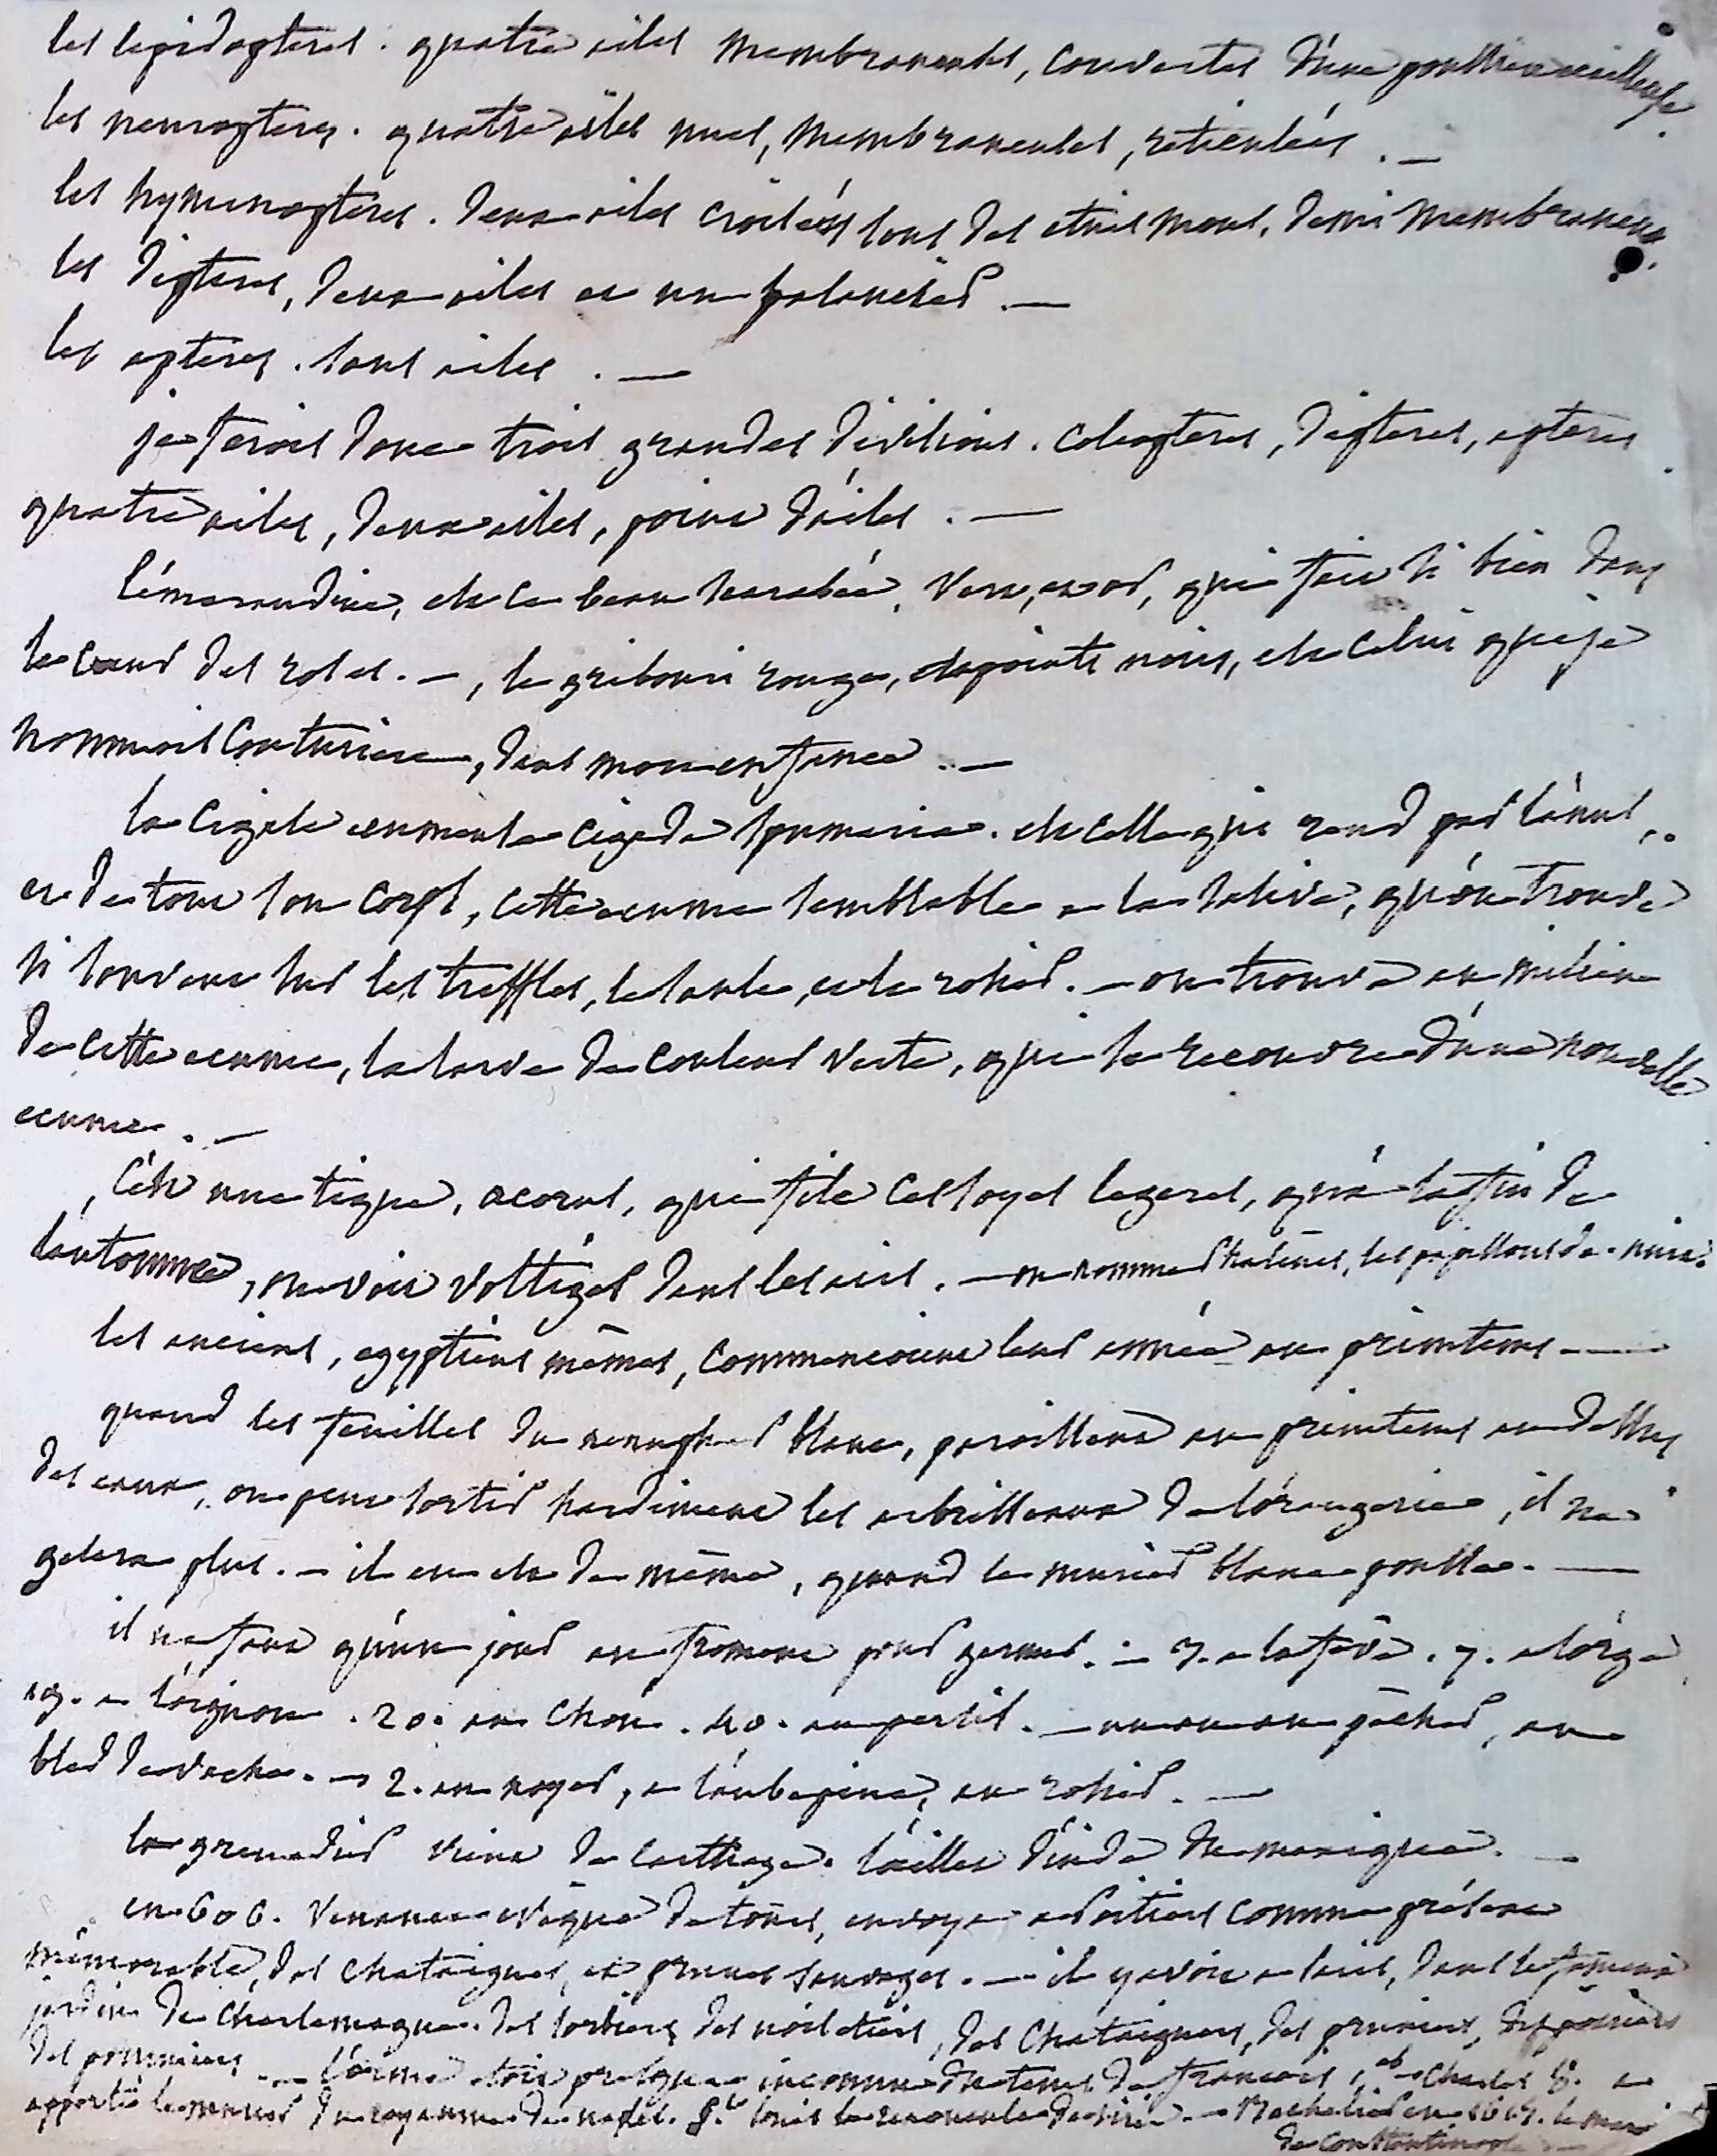 les lepidopteres. quatre ailes membraneuses, couvertes d'une poussiere ecailleuse
les nevropteres. quatre ailes nues, membraneuses, reticulées. —
les hymenopteres. deux ailes croisées sous des etuis mous, demi membraneux.
les dipteres, deux ailes et un balancier. —
les apteres. sans ailes. —
je ferois donc trois grandes divisions. coleopteres, dipteres, apteres
quatre ailes, deux ailes, point d'ailes. —
l'émeraudine, est ce beau scarabée, vert, et or, qui fait si bien dans
le cœur des roses. —, le gribouri rouge, a points noirs, est celui que je
nommois couturiere, dans mon enfance. —
la cigale ecumante cigada spumaria. est celle qui rend par l'anus,
et de tout son corps, cette ecume semblable a la salive, qu'on trouve
si souvent sur les treffles, le saule, et le rosier. — on trouve au milieu
de cette ecume, la larve de couleur verte, qui se recouvre d'une nouvelle
ecume. —
c'est une tique, acorus, qui file ces soyes legeres, qu'a la fin de
l'automne, on voit voltiger dans les airs. — on nomme phalenes, les papillons de nuit.
les anciens, egyptiens mêmes, commencoient leur année au printems —
quand les feuilles du nenuphar blanc, paroissent au printems au dessus
des eaux, on peut sortir hardiment les arbrisseaux de l'orangerie, il ne
gelera plus. — il en est de même, quand le murier blanc pousse. —
il ne faut qu'un jour au froment pour germer. — 3. a la feve. 7. a l'orge
19. a l'oignon. 20. au chou. 40. au persil. — un an au pêcher, au
bled de vache. — 2. au noyer, a l'aubepine, au rosier. —
le grenadier vient de carthage. l'œillet d'inde du mexique. —
en 606. venance evêque de tours, envoya a poitiers comme présent
mémorable, des chataignes, et prunes sauvages. — il y avoit dans le fameux
jardin de charlemagne. des sorbiers des noisetiers, des chataigners, des pruniers, des poiriers
des pommiers — l'orme etoit presque inconnu du tems de francois 1er — charles 8. a
apporté le murier du royaume de naples. St. louis la renoncule de sirie. — Bachelier en 1615. le maro
de constantinople —